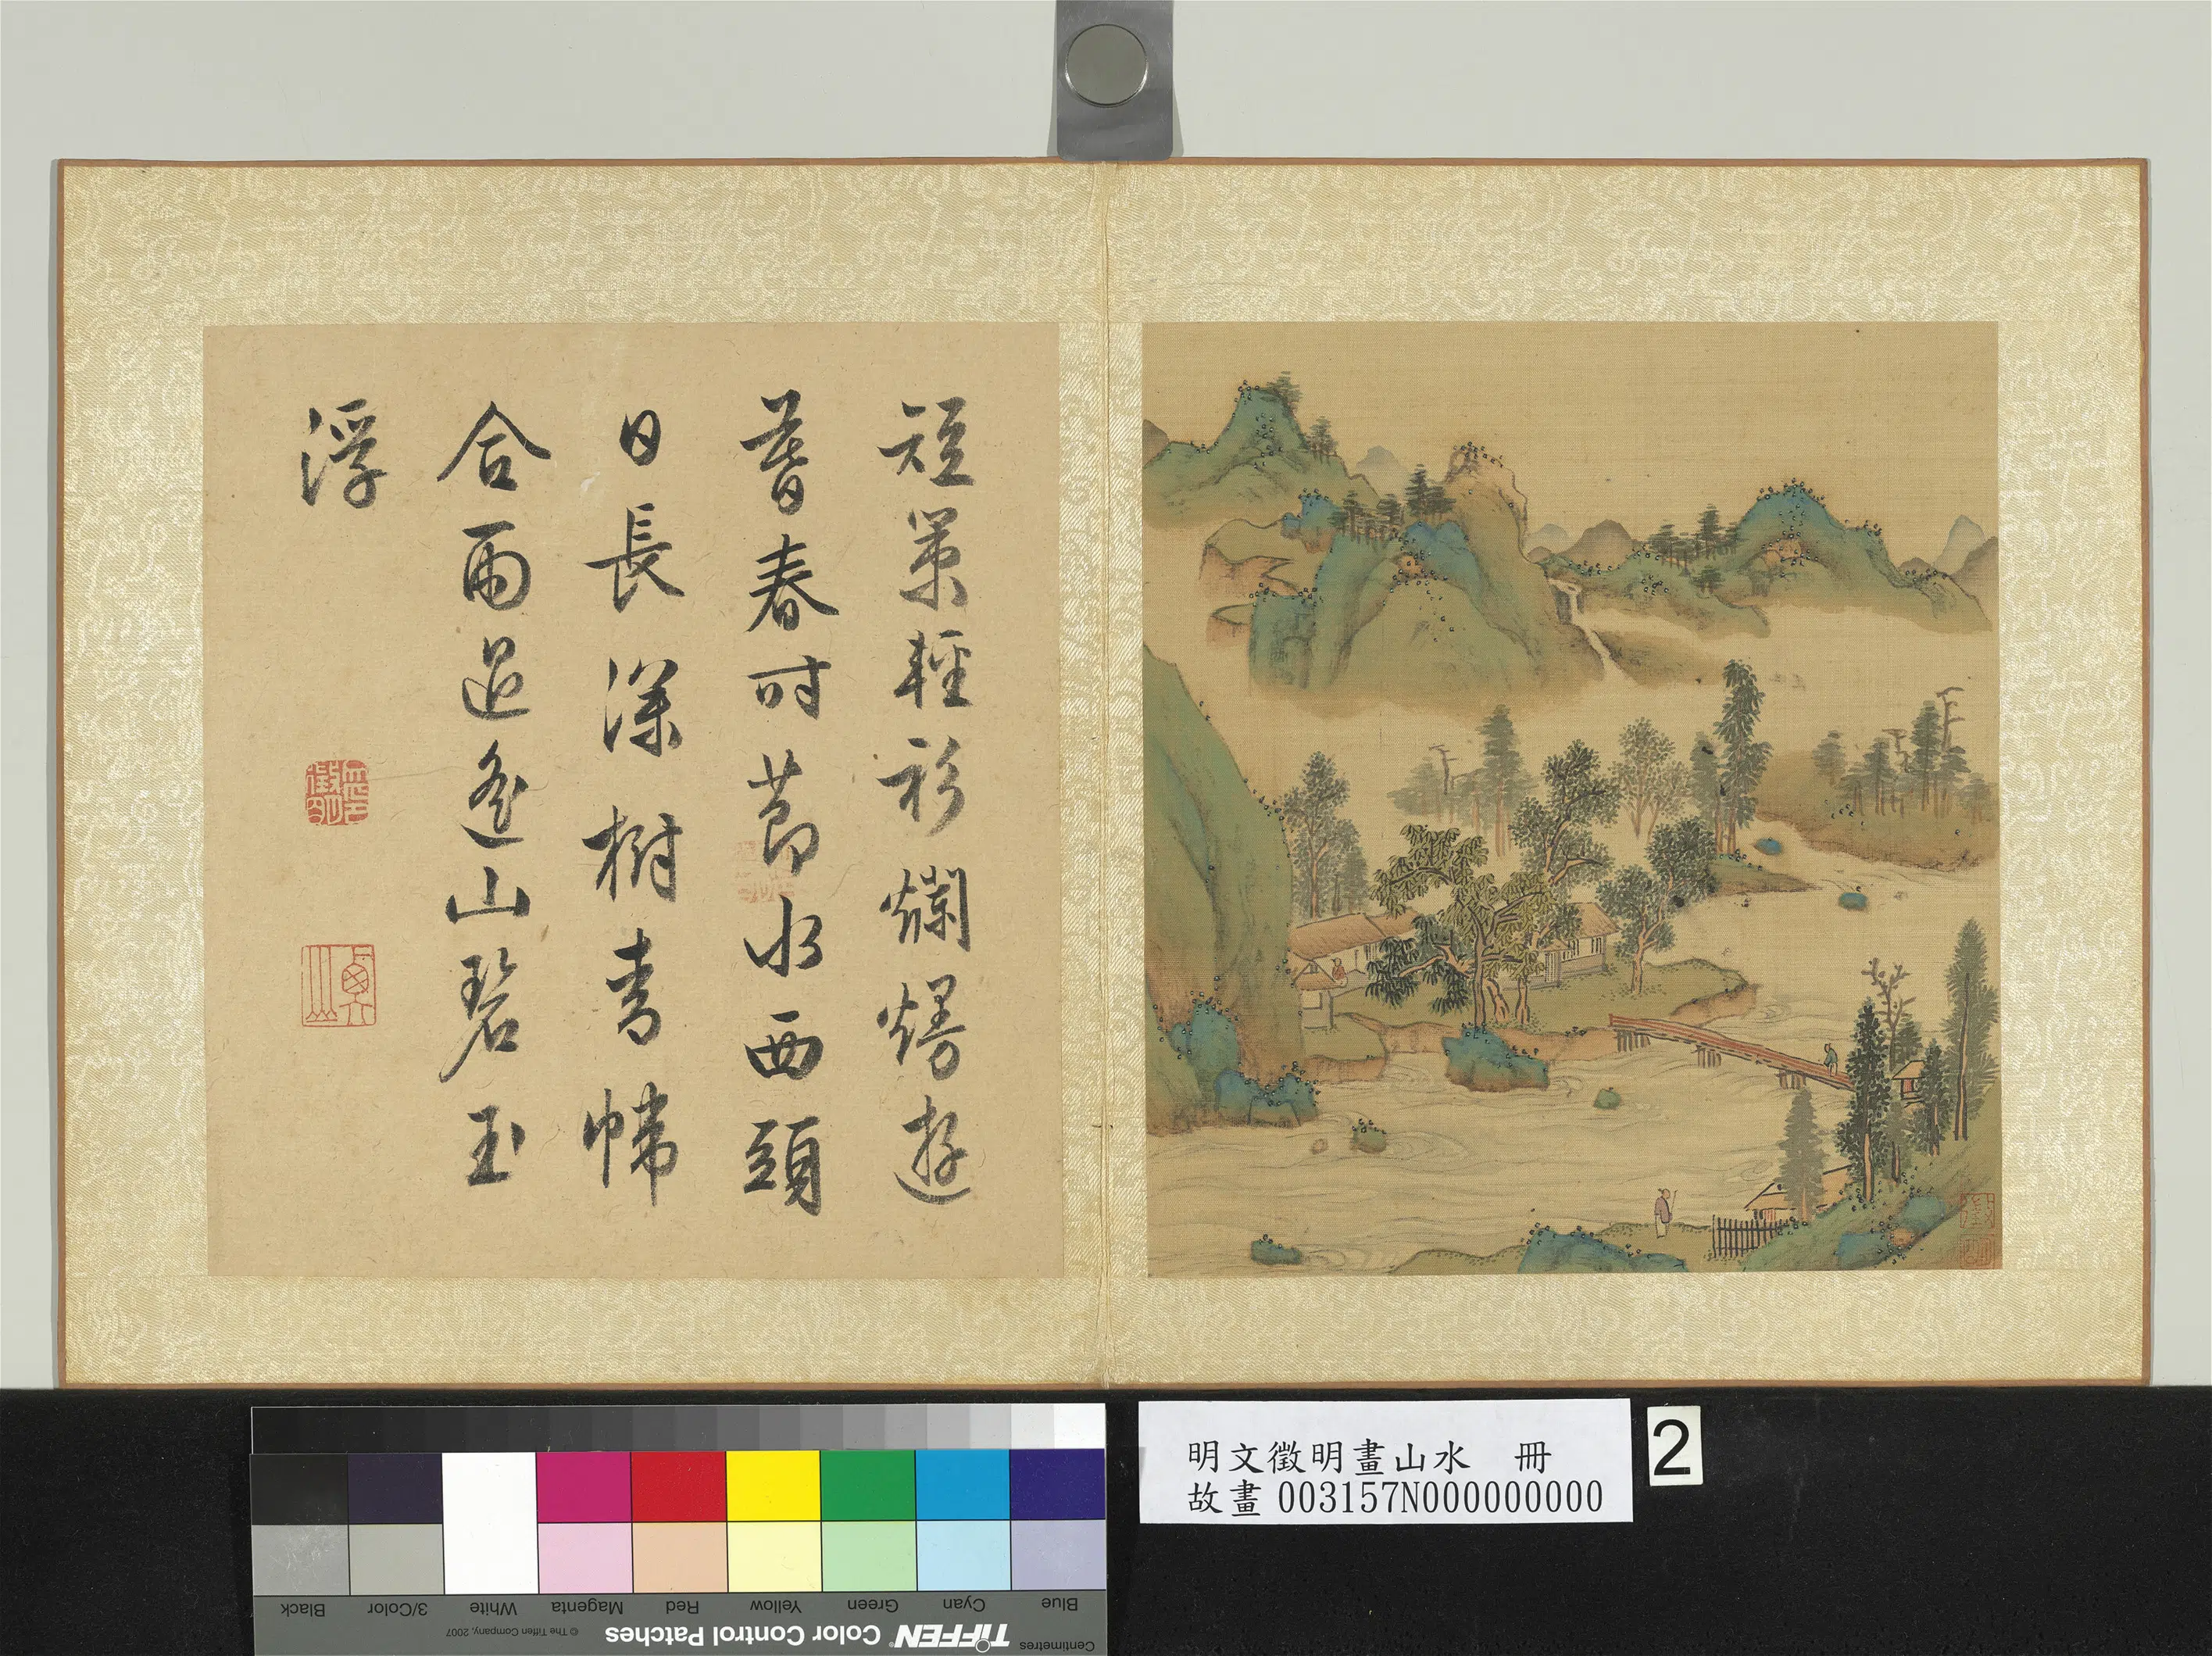 短策輕衫爛熳遊
暮春時節水西頭
日長深樹青幃
合雨過遙山碧玉
浮
明文徵明畫山水 冊
故畫 003157N000000000
2
Centimetres
TIFFEN® Color Control Patches
© The Tiffen Company, 2007
Blue Cyan Green Yellow Red Magenta White 3/Color Black